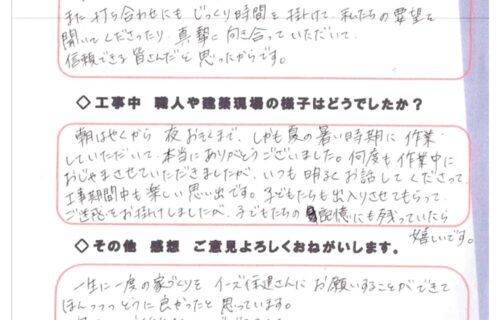 また打ち合わせにもじっくり時間を掛けて、私たちの要望を
聞いてくださったり、真摯に向き合っていただいて、
信頼できる皆さんだと思ったからです。
◇工事中 職人や建築現場の様子はどうでしたか?
朝はやくから 夜おそくまで、しかも夏の暑い時期に 作業
していただいて、本当にありがとうございました。何度も作業中に
おじゃまさせていただきましたが、いつも明るくお話してくださって、
工事期間中も楽しい思い出です。子どもたちも出入りさせてもらって、
ご迷惑をお掛けしましたが、子どもたちの記憶にも残っていたら
嬉しいです。
◇その他 感想 ご意見よろしくおねがいします。
一生に一度の家づくりを イーズ住建さんに お願いすることができて
ほんっっっとうに良かったと思っています。